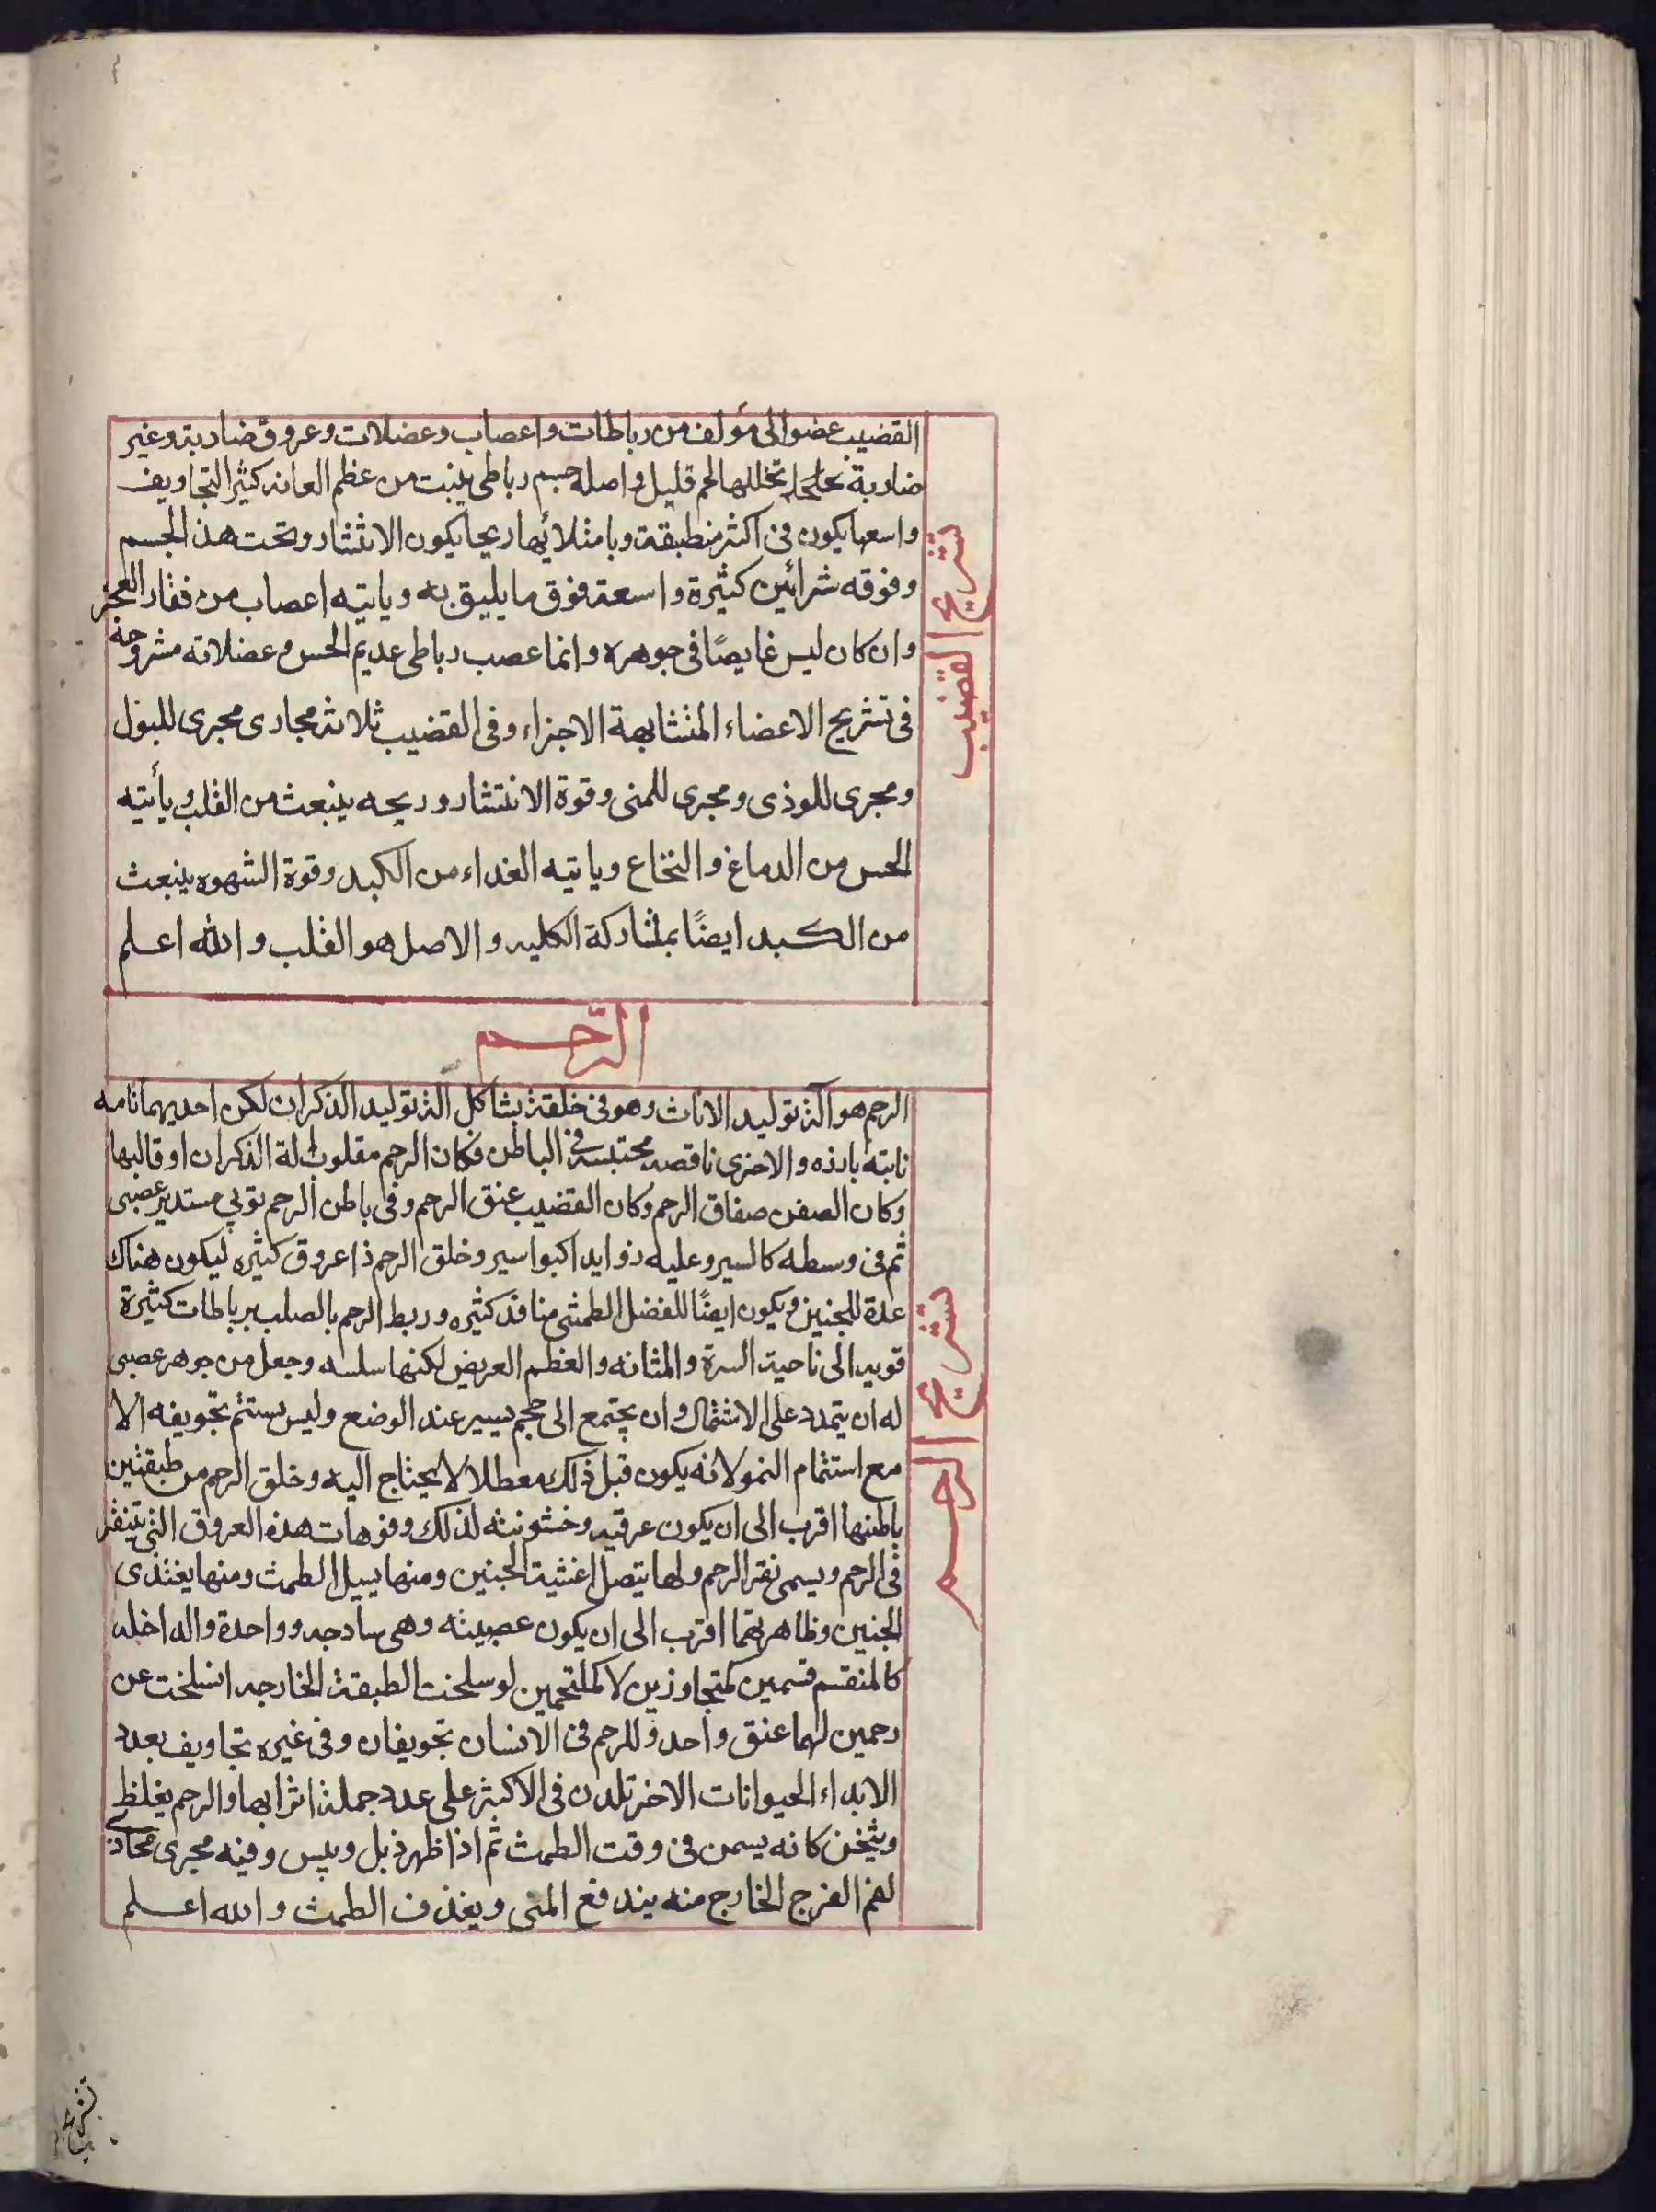 القضيب عضو الى مؤلف من رباطات واعصاب وعضلات وعروق ضاربة وغير
ضاربة تخللها لحم قليل واصله جسم رباطى ينبت من عظم العانه كثير التجاويف
واسعها يكون فى اكثر منطبقة وبامتلائها ريحا يكون الانتشار وتحت هذا الجسم
وفوقه شرائين كثيرة واسعة فوق ما يليق به وياتيه اعصاب من فقار العجز
وان كان ليس غايصًا فى جوهره وانما عصب رباطى عديم الحس وعضلاته مشروحة
فى تشريح الاعضاء المتشابهة الاجزاء وفى القضيب ثلاثة مجارى مجرى للبول
ومجرى للوذى ومجرى للمنى وقوة الانتشار وريحه ينبعث من القلب ويأتيه
الحس من الدماغ والنخاع وياتيه الغداء من الكبد وقوة الشهوه ينبعث
من الكبد ايضًا بمشاركة الكليه والاصل هو القلب والله اعلم
تشريح القضيب
الرّحم
الرحم هو آلة توليد الاناث وهو فى خلقة يشاكل الة توليد الذكران لكن احديهما تامه
نابته بارزه والاخرى ناقصه محتبسة فى الباطن فكان الرحم مقلوب الة الذكران او قالبها
وكان الصفن صفاق الرحم وكان القضيب عنق الرحم وفى باطن الرحم توبي مستدير عصبى
ثم فى وسطه كالسير وعليه زوايد اكبواسير وخلق الرحم ذا عروق كثيره ليكون هناك
عدة للجنين ويكون ايضًا للفضل الطمثى منافذ كثيره وربط الرحم بالصلب برباطات كثيرة
قويه الى ناحية السرة والمثانه والعظم العريض لكنها سلسه وجعل من جوهر عصبى
له ان يتمدد على الاشتمال وان يجتمع الى حجم يسير عند الوضع وليس يستتم تجويفه الا
مع استتمام النمو لانه يكون قبل ذلك معطلا لا يحتاج اليه وخلق الرحم من طبقتين
باطنها اقرب الى ان يكون عرقيه وخشونته لذلك وفوهات هذه العروق التى تتنقر
فى الرحم ويسمى نقر الرحم ولها يتصل اغشية الجنين ومنها يسيل الطمث ومنها يغتذى
الجنين وظاهر تهما اقرب الى ان يكون عصبيته وهى سادجه وواحدة والداخله
كالمنقسم قسمين كمتجاوزين لا كملتحمين لو سلخت الطبقة الخارجه انسلخت عن
رحمين لهما عنق واحد وللرحم فى الانسان تجويفان وفى غيره تجاويف بعدد
الابداء الحيوانات الاخر تلدن فى الاكثر على عدد جملة اثرابها والرحم يغلظ
ويثخن كانه يسمن فى وقت الطمث ثم اذا ظهر ذبل ويبس وفيه مجرى محاذى
لفم الفرج الخارج منه يندفع المنى ويغذف الطمث والله اعلم
تشريح الرحم